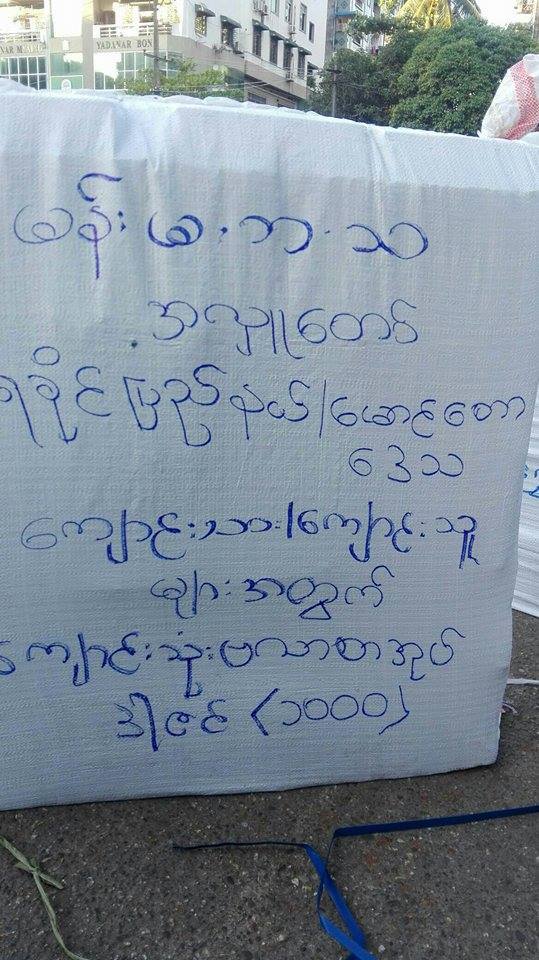 YADANAR BON
မန်း မ.ဘ.သ
အလှူတော်
ရခိုင်ပြည်နယ်/မောင်တော
ဒေသ
ကျောင်းသား/ကျောင်းသူ
များအတွက်
ကျောင်းသုံးဗလာစာအုပ်
ဒါဇင် (၁၀၀၀)